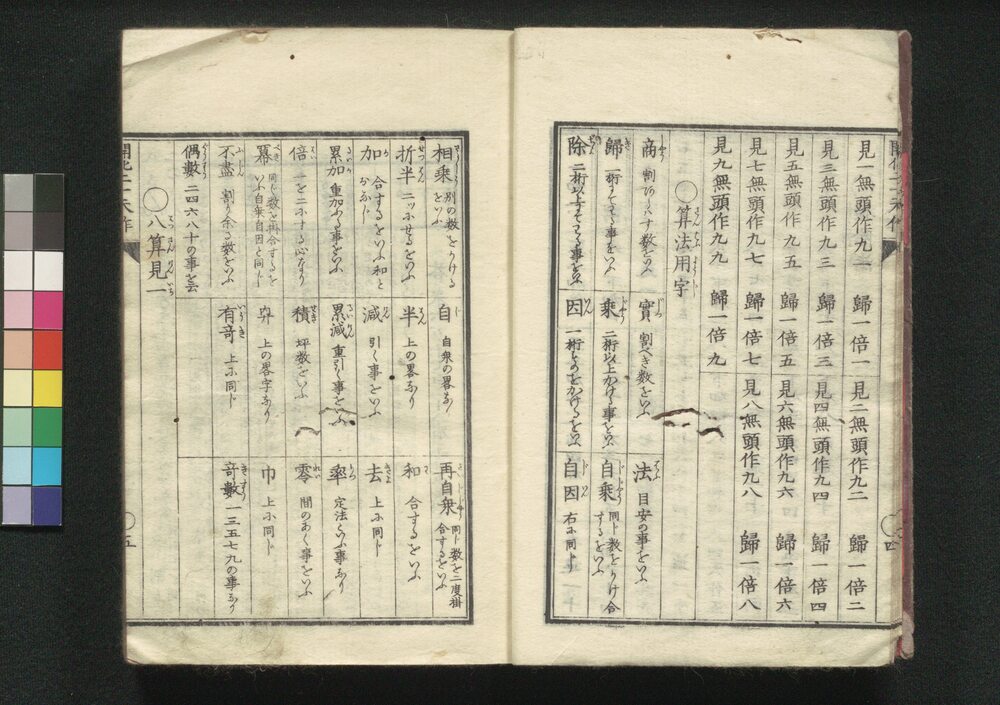 見一無頭作九一 歸一倍一 見二無頭作九二 歸一倍二
見三無頭作九三 歸一倍三 見四無頭作九四 歸一倍四
見五無頭作九五 歸一倍五 見六無頭作九六 歸一倍六
見七無頭作九七 歸一倍七 見八無頭作九八 歸一倍八
見九無頭作九九 歸一倍九
〇算法用字
商 實 割べき数をいふ 法 目安の事をいふ
歸 一桁にてわる事をいふ 乗 二桁以上かける事をいふ 自乗 同じ数をかけ合するをいふ
除 二桁以上にてわる事をいふ 因 一桁ものをかけるをいふ 自因 右に同じ
四
相乗 別の数をかけるをいふ 自 自乗の畧なり 再自乗 同じ数を二度掛合するをいふ
折半 二ッにせるをいふ 半 上の畧なり 和 合するをいふ
加 合するをいふ和とおなじ 減 引く事をいふ 去 上に同じ
累加 重加ふる事をいふ 累減 重引く事をいふ 率 定法といふ事なり
倍 一を二にする心なり 積 坪数をいふ 零 間のあく事をいふ
冪 同じ数を再合するをいふ自乗自因と同じ 上の畧字なり 巾 上に同じ
不盡 割り余る数をいふ 有竒 上に同じ 竒數 一三五七九の事なり
偶數 二四六八十の事を云
〇八算見一
五